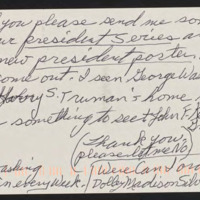 you please send me som
our president Series a
new president poster.
come out. I seen George Wa
Harry S. Truman's home
something to see + John F.
(Thank you,
please let me No)
ashing Were Can I ord
in every week. Dolley Madison Sil